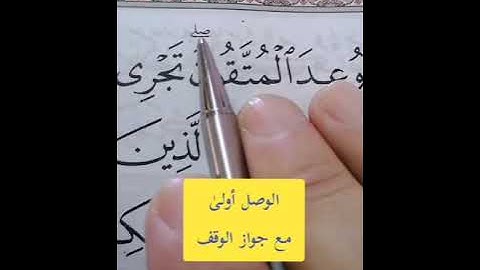 صلے
وُعِدَ ٱلْمُتَّقُونَ تَجْرِى
ٱلَّذِينَ
الوصل أولىٰ
مع جواز الوقف